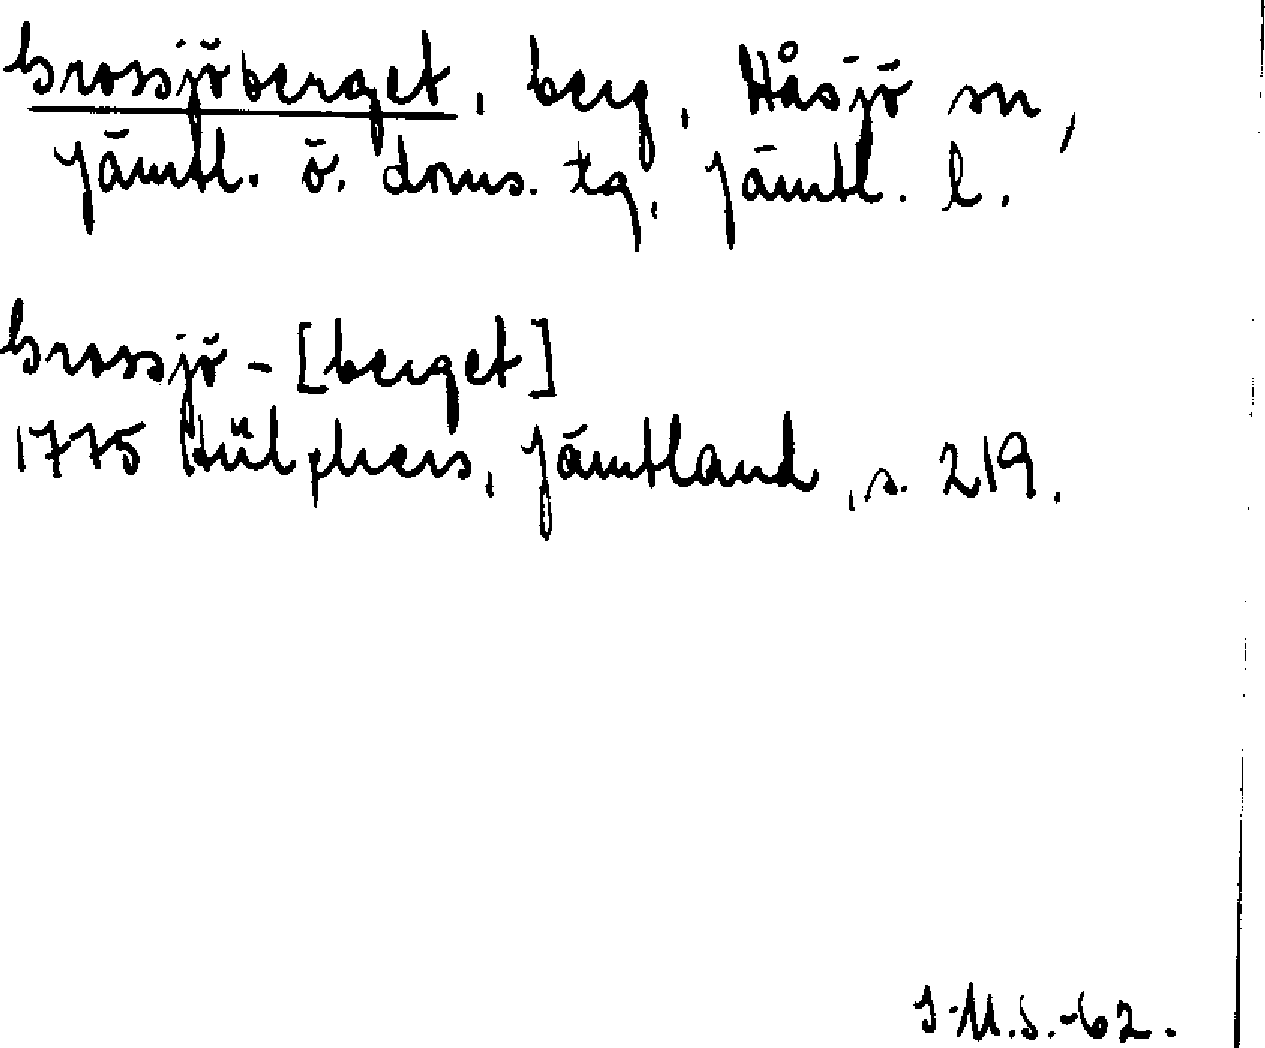 Grossjöberget, berg, Håsjö sn,
Jämtl. ö. doms. tg, Jämtl. l.
Grossjö-[berget]
1775 Hülphers, Jämtland, s. 219.
I-M.S.-62.